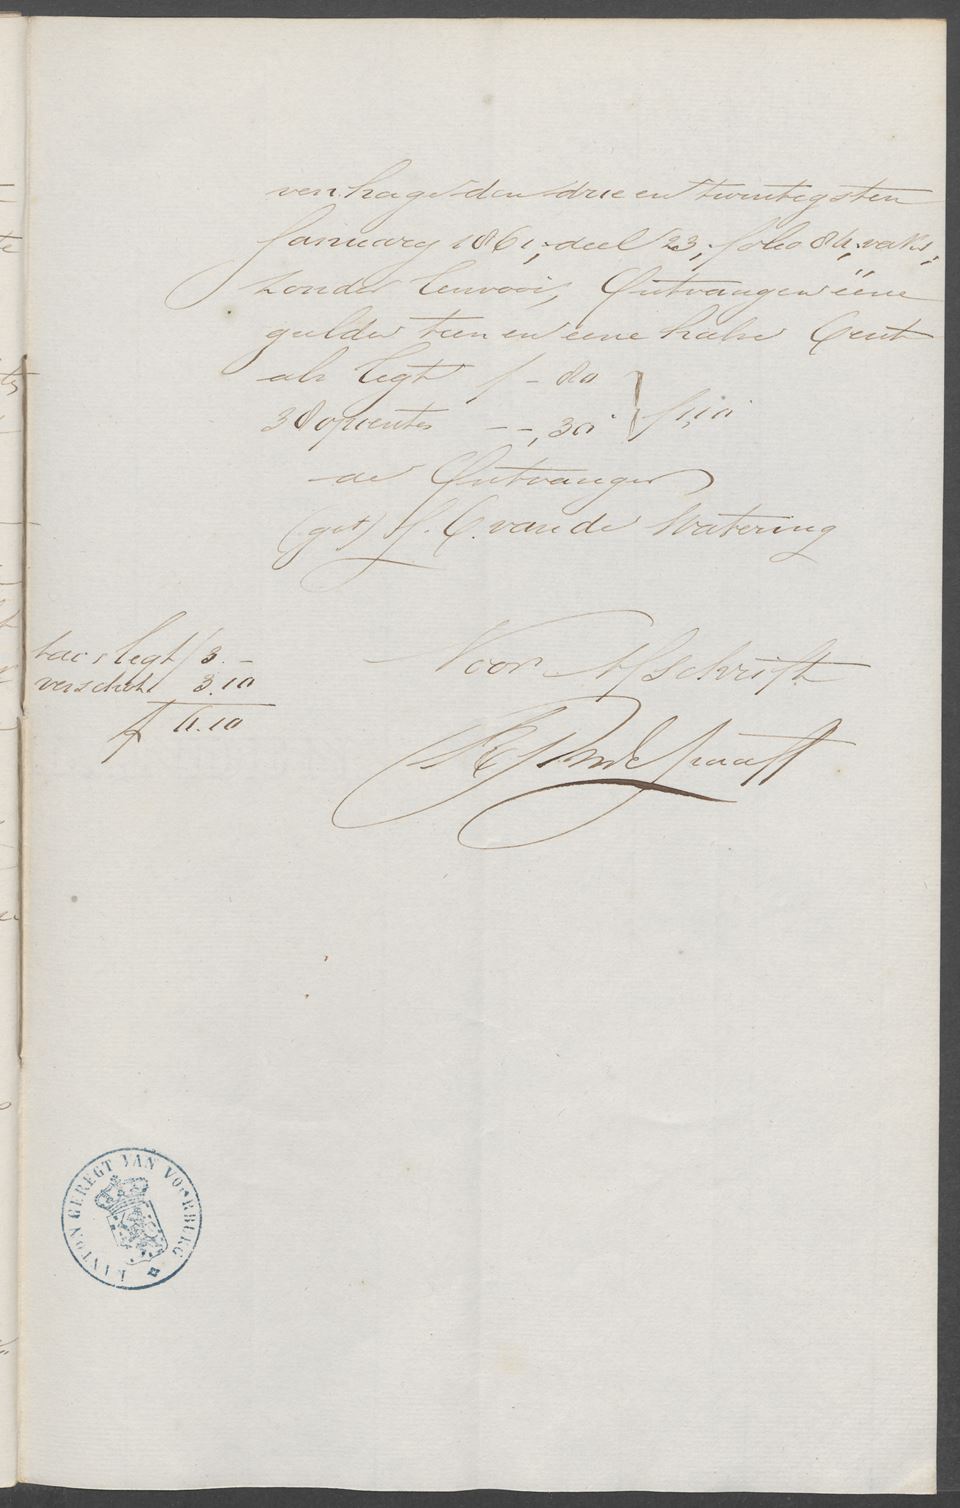 venhage den drie en twintigsten
January 1861, deel 23, folio 84, vak 1,
zonder renvooi, Ontvangen ééne
gulden tien en eene halve Cent
als regt f - 80
38 opcenten - -, 30⁵ f 1,10⁵
de Ontvanger
(get) H. C. van de Watering
Voor Afschrift
regt 3. -
verschot 3.10
f 6.10
KANTON GEREGT VAN VOORBURG